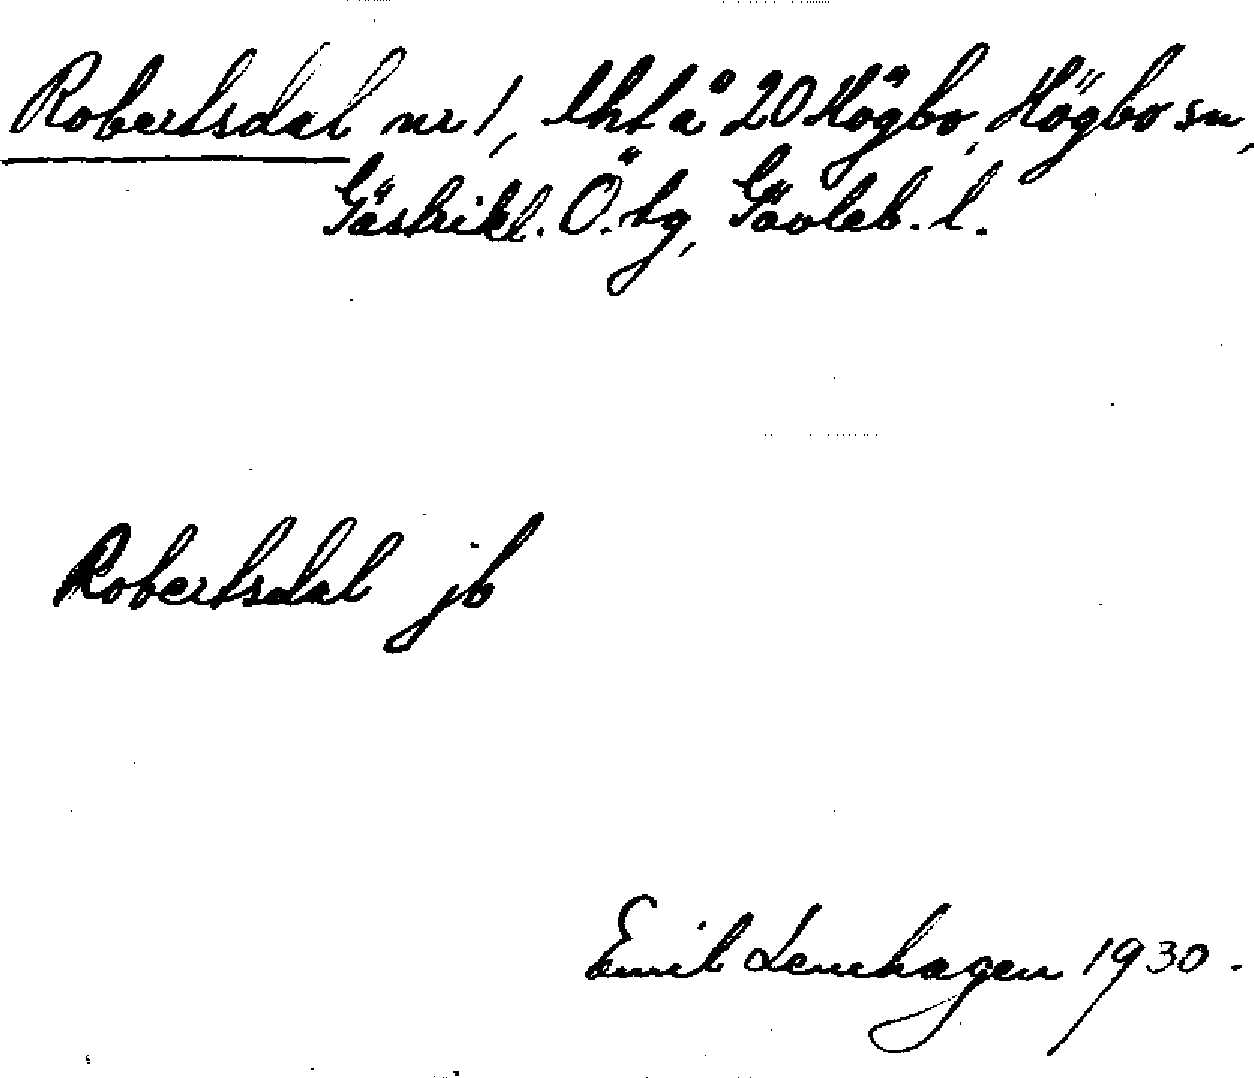 Robertsdal nr 1, lht å 20 Högbo, Högbo sn,
Gästrikl. Ö. tg, Gävleb. l.
Robertsdal jb
Emil Lenhagen 1930.